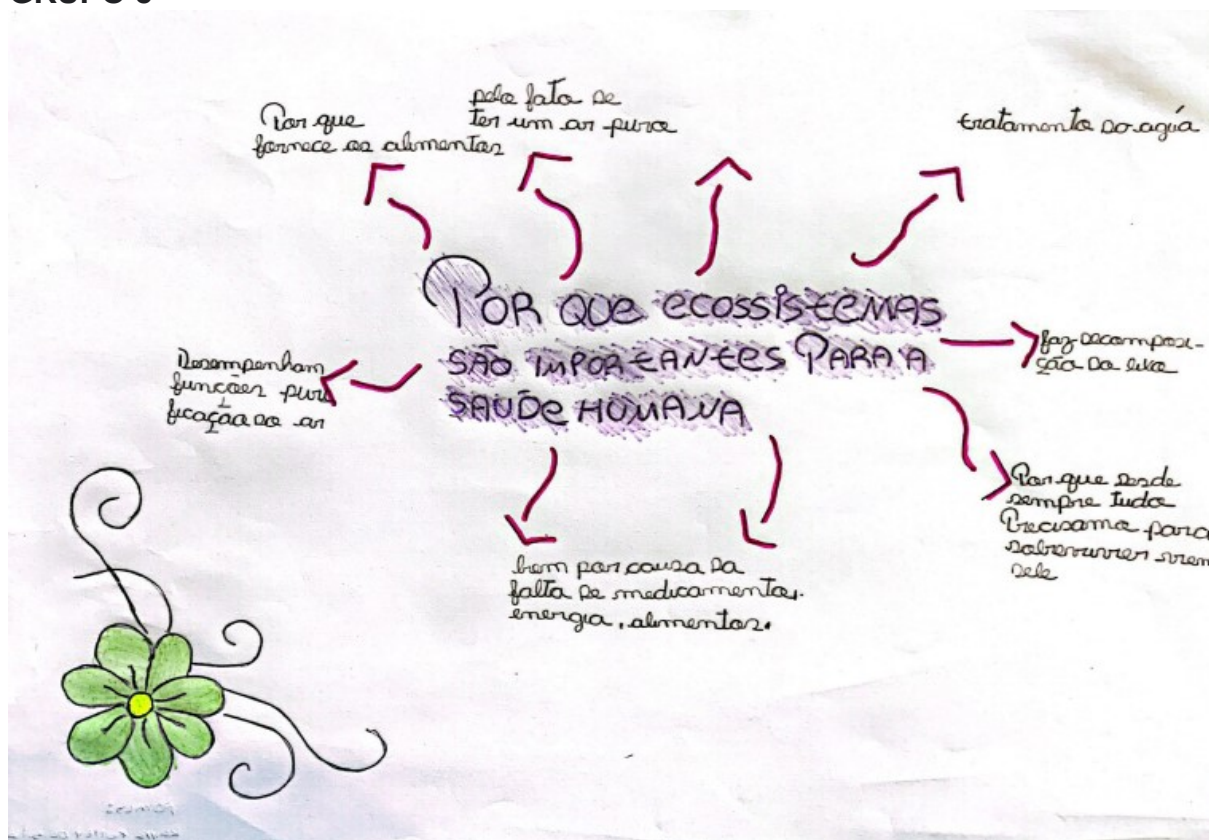 Por que
fornece os alimentos
pelo fato de
ter um ar puro
tratamento do aguá
POR QUE ECOSSISTEMAS
SÃO IMPORTANTES PARA A
SAÚDE HUMANA
faz decomposi-
ção do lixo
Desempenham
funcoes puri
ficação do ar
Por que desde
sempre tudo
Precisamo para
sobreviver
dele
bem por causa da
falta de medicamentos.
energia, alimentos.